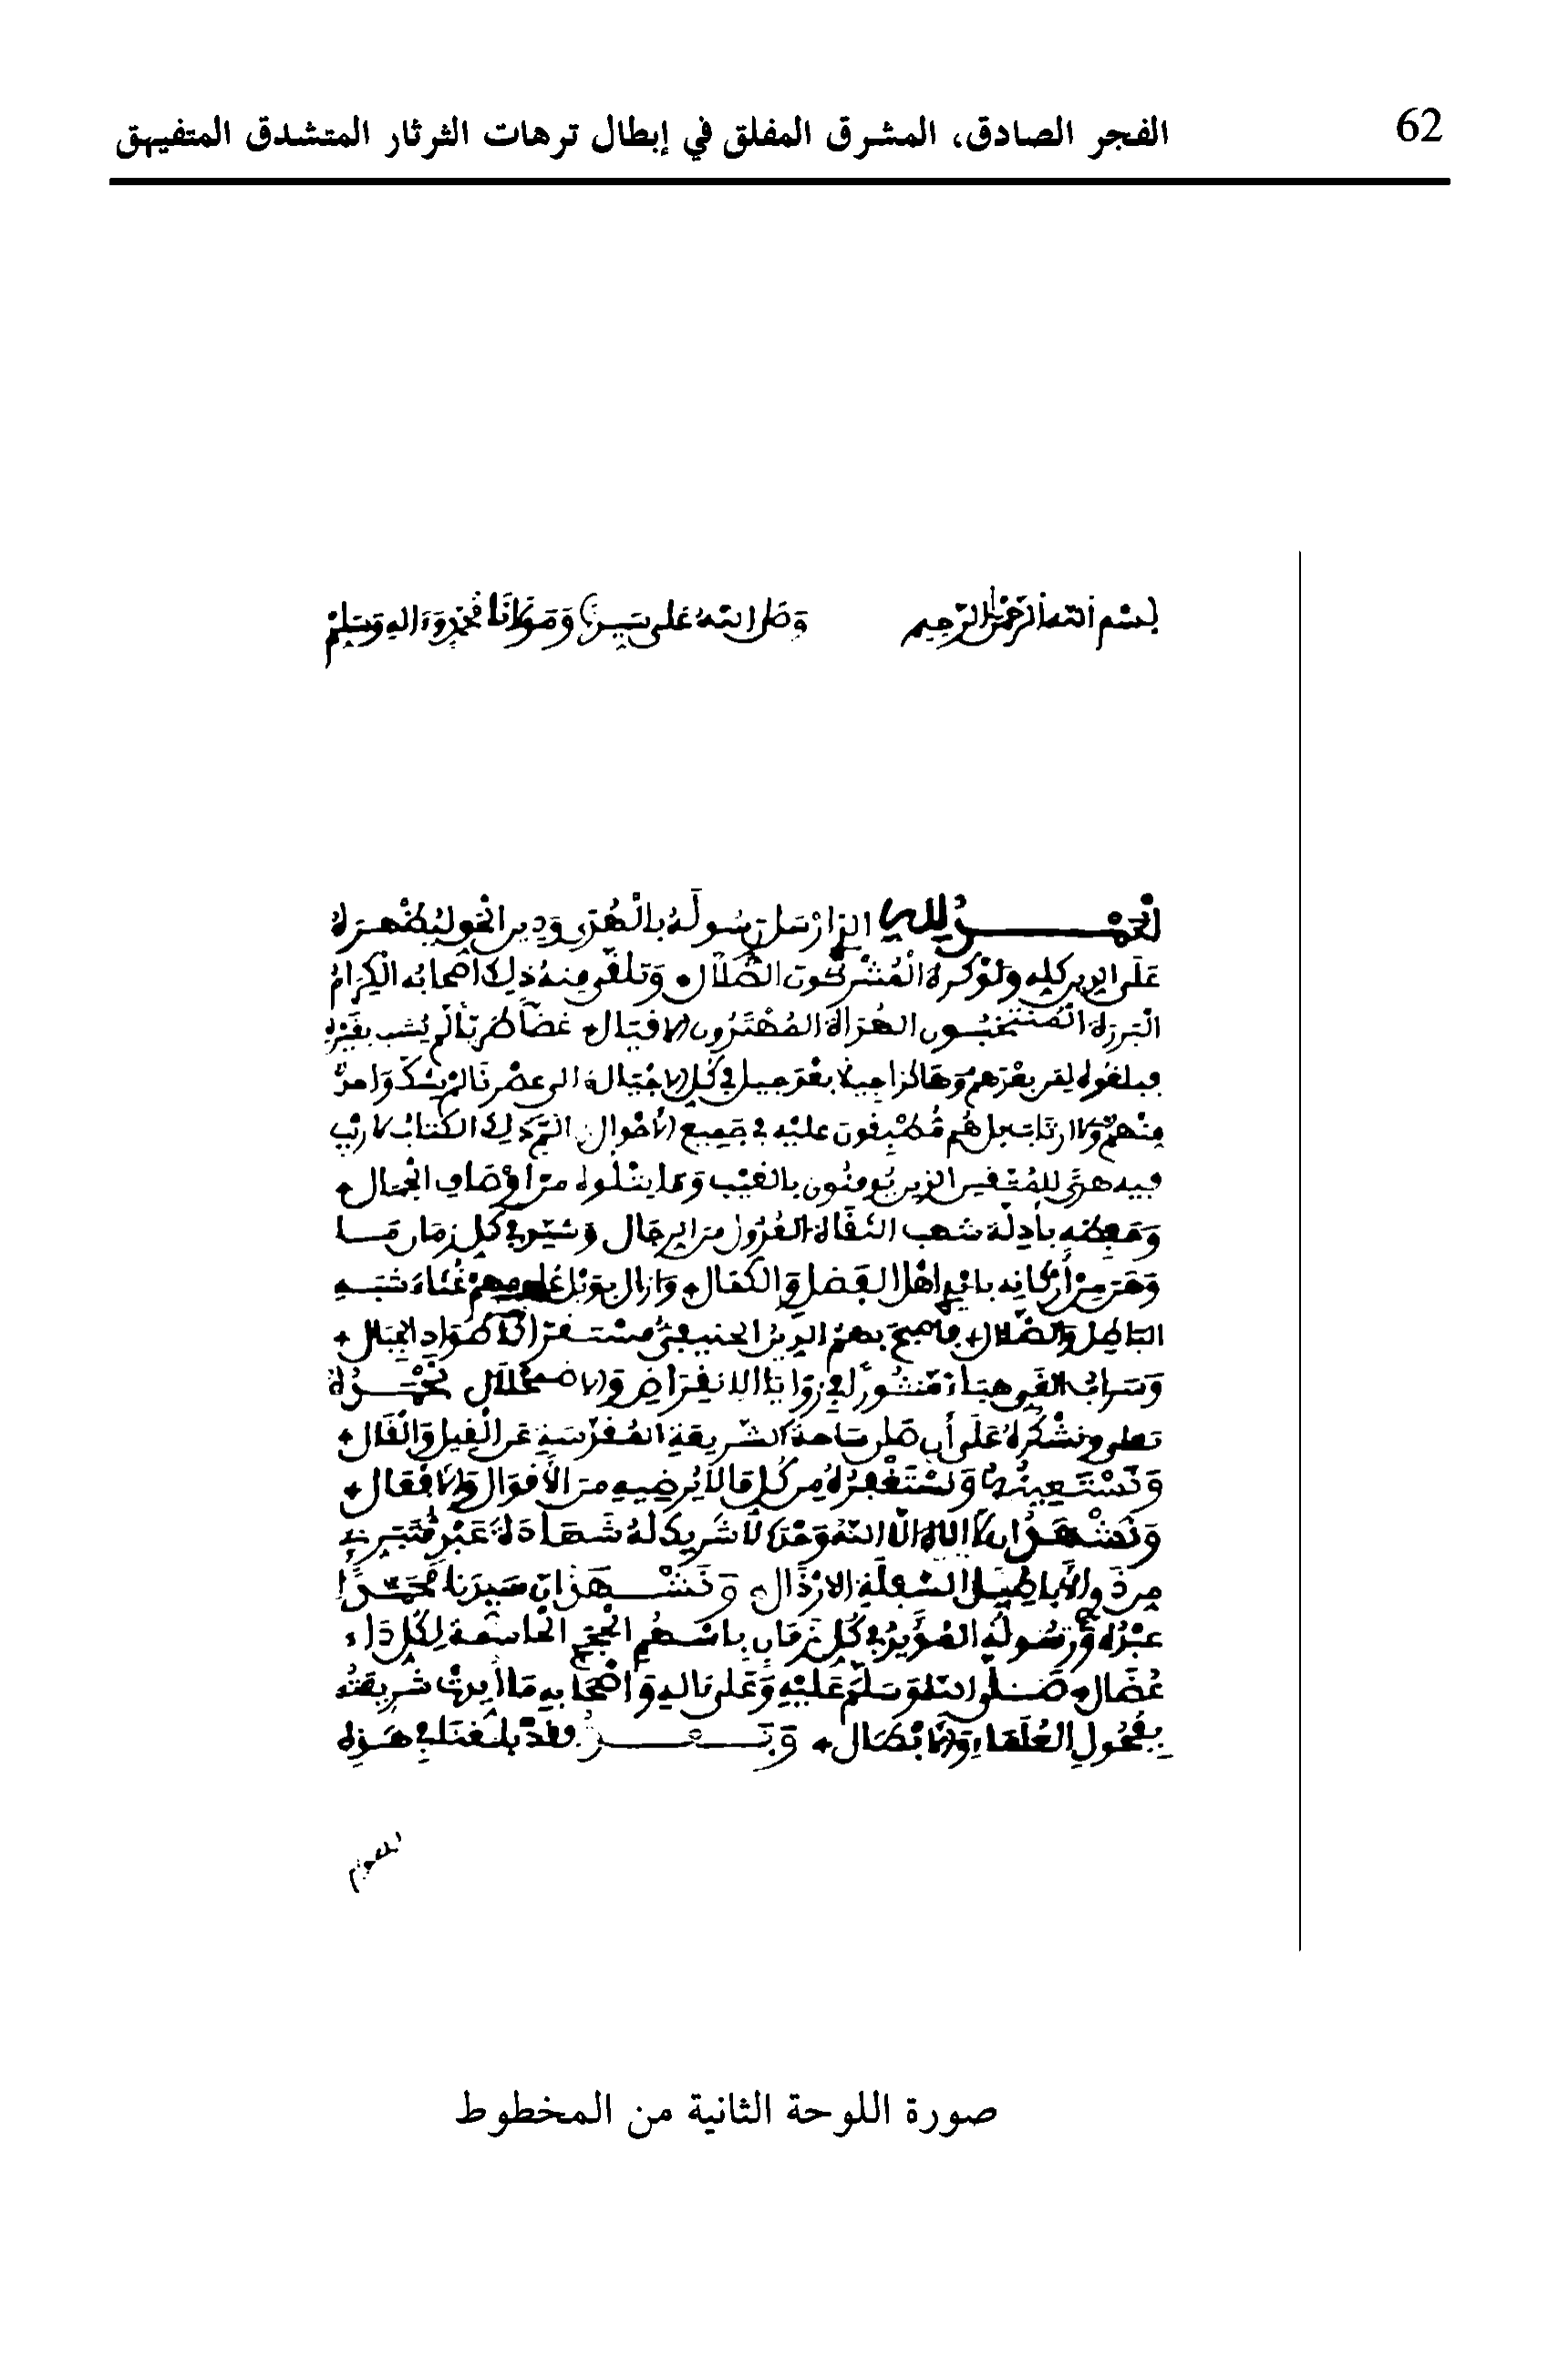 62
الفجر الصادق، المشرق المفلق في إبطال ترهات الثرثار المتشدق المتفيهق
بسم الله الرحمن الرحيم وصلى الله على سيدنا ومولانا محمد وءاله وسلم
الحمد لله الذي أرسل رسوله بالهدى ودين الحق ليظهره
على الدين كله ولو كره المشركون الضلال، وتلقى منه ذلك أصحابه الكرام
البررة المنتخبون الهداة المهتدون الاقيال غضا طريا لم يشب بقذى
فبلغوه لمن بعدهم وهكذا جيلا بعد جيل في كل الاجيال، الى عصرنا لم يشك واحد
منهم ولا ارتاب بل هم مطبقون عليه في جميع الأحوال، الم ذلك الكتاب لا ريب
فيه هدى للمتقين الذين يومنون بالغيب وما يتلوه من أوصاف الجمال،
بأدلة شهب الثقاة العدول من الرجال وشيد في كل زمان ما
وهى من أركانه باقي اهل الفضل والكمال، وازال بوبل علومهم غثاء شبه
الباطل والضلال، فأصبح بهم الدين الحنيفي مستقرا كأطواد الجبال،
وسراب الغي هباء منثورا في زوايا الانقراض والاضمحلال نحمده
تعلى ونشكره على أن طهر ساحة الشريعة المقدسة عن القيل والقال،
ونستعينه ونستغفره من كل ما لا يرضيه من الأقوال والافعال،
ونشهد ان لا اله الا الله وحده لا شريك له شهادة عبد متبرئ
من ذوي الأباطيل السفلة الارذال، ونشهد ان سيدنا محمدا
عبده ورسوله المؤيد في كل زمان باسهم الحجج الحاسمة لكل داء
عضال، صلى الله وسلم عليه وعلى ءاله واصحابه ما أيدت شريعته
بفحول العلماء والابطال، وبعد فقد بلغنا في هذه
صورة اللوحة الثانية من المخطوط